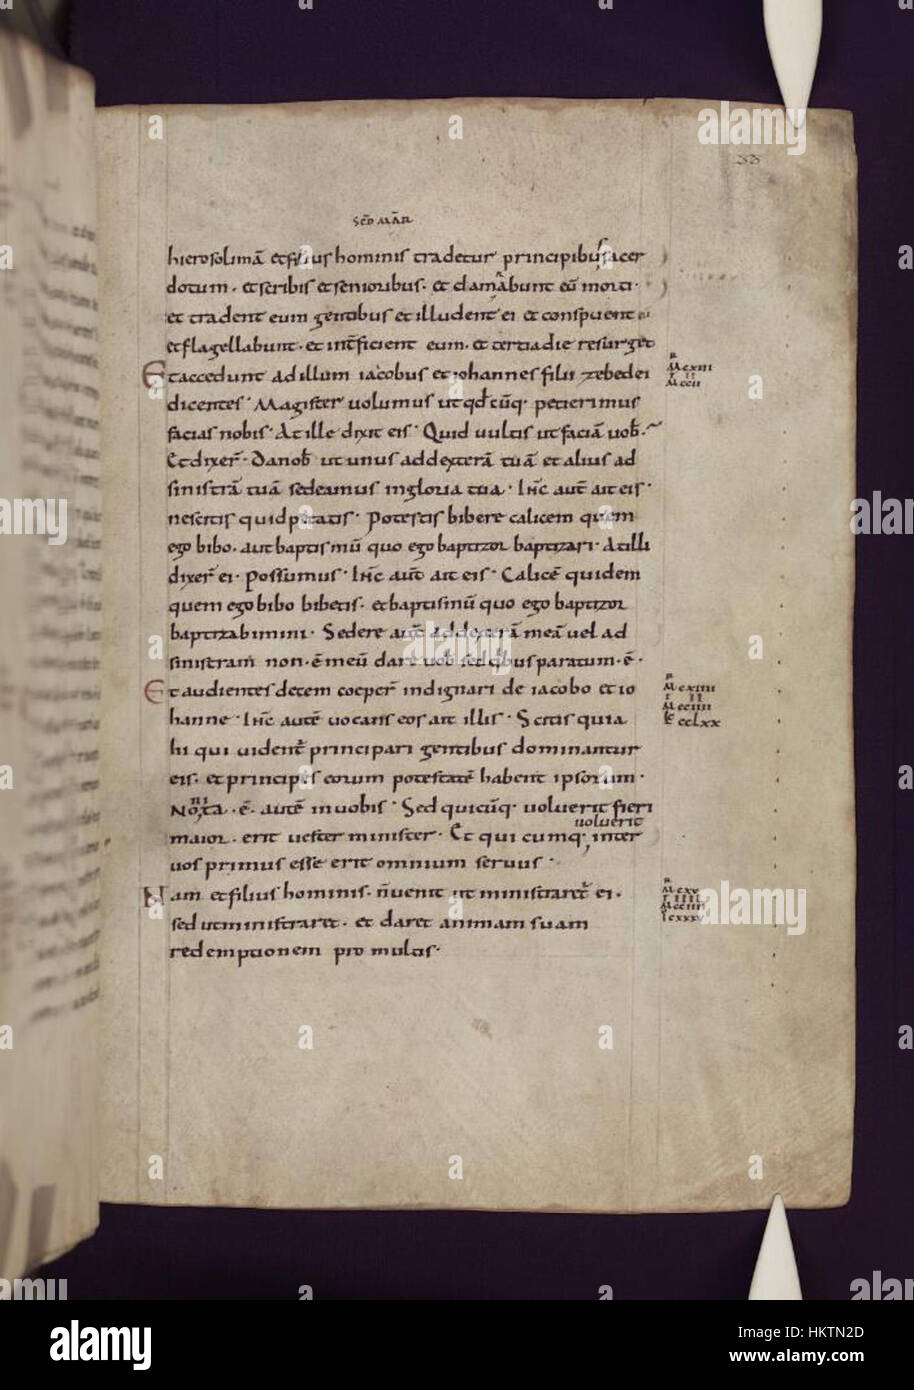 SED MAR
hierosolimā et filius hominis tradetur principibus sacer
dotum · et scribis et senioribus · et damnabunt eū morti ·
et tradent eum gentibus et illudent ei et conspuent ei
et flagellabunt · et int̄ficient eum · et tertia die resurget
Et accedunt ad illum iacobus et iohannes filii zebedei
dicentes · Magister uolumus ut qđcūq· petierimus
facias nobis · At ille dixit eis · Quid uultis ut faciā uob̄ ·
Et dixer̄ · Da nob̄ ut unus ad dexterā tuā et alius ad
sinistrā tuā sedeamus in gloria tua · Ihc̄ aut̄ ait eis ·
nescitis quid petatis · Potestis bibere calicem quem
ego bibo · aut baptismū quo ego baptizor baptizari · At illi
dixer̄ ei · Possumus · Ihc̄ aut̄ ait eis · Calicē quidem
quem ego bibo bibetis · et baptismū quo ego baptizor
baptizabimini · Sedere aut̄ ad dexterā meā uel ad
sinistram non · ē meū dare uob̄ sed qibus paratum · ē ·
Et audientes decem coeper̄ indignari de iacobo et io
hanne · Ihc̄ autē uocans eos ait illis · Scitis quia
hi qui uident̄ principari gentibus dominantur
eis · et principes eorum potestatē habent ipsorum ·
Non ita · ē · autē in uobis · Sed quicūq· uoluerit fieri
maior · erit uester minister · Et qui cumq· uoluerit inter
uos primus esse erit omnium seruus ·
Nam et filius hominis · n̄ uenit ut ministraret̄ ei ·
sed ut ministraret · et daret animam suam
redemptionem pro multis ·
M cxiii
II
M ccii
M cxiiii
II
M cciiii
L cclxx
M cxv
IIII
M cciiii
alamy
Image ID: HKTN2D
www.alamy.com